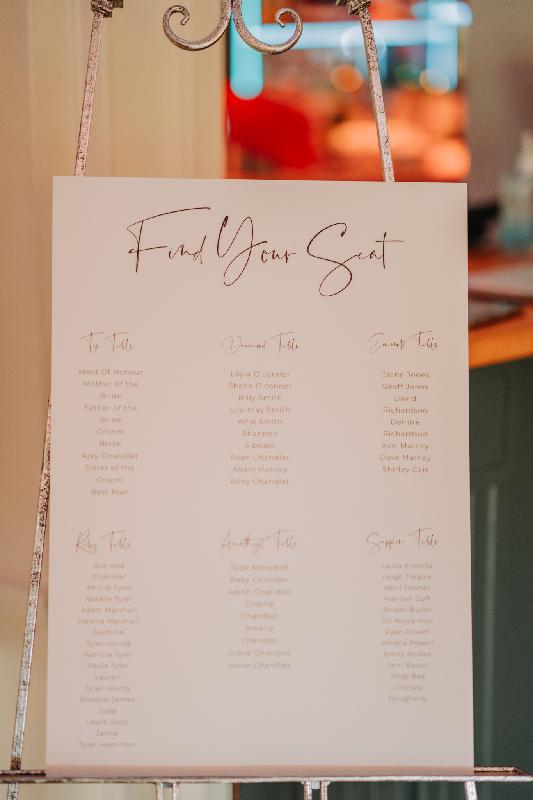 Find Your Seat
Top Table
Maid Of Honour
Mother of the
Bride
Father of the
Bride
Groom
Bride
Ajay Chandler
Sister of the
Groom
Best Man
Diamond Table
Leyla O'connor
Shane O'connor
Billy Smith
Lily-may Smith
Alfie Smith
Shannon
Sibbald
Ryan Chandler
Adam Hartley
Riley Chandler
Emerald Table
Diane Jones
Geoff Jones
David
Richardson
Deirdre
Richardson
Kim Marney
Dave Marney
Shirley Carr
Ruby Table
Ava-rose
Chandler
Phillip Tyler
Natalie Tyler
Adam Marshall
Helena Marshall
Jasmine
Tyler-Young
Patricia Tyler
Paula Tyler
Lauren
Tyler-Young
Shelbie-James
Jupp
Lewis Jupp
Jamie
Tyler-Hamilton
Amethyst Table
Jade Meredith
Baby Chandler
Aaron Chandler
Charlie
Chandler
Amelia
Chandler
Grace Chandler
Louie Chandler
Sapphire Table
Laura Kinsella
Leigh Tingley
April Towner
Hannah Goff
Jordan Butler
Oli Wood-Holt
Ryan Powell
Amelia Powell
Emily McRae
Terri Bacon
Andy Bee
Chelsea
Dougherty